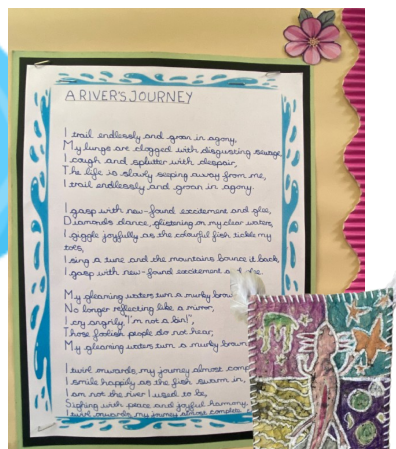 A RIVER'S JOURNEY
I trail endlessly and groan in agony,
My lungs are clogged with disgusting sewage,
I cough and splutter with despair,
The life is slowly seeping away from me,
I trail endlessly and groan in agony.
I gasp with new-found excitement and glee,
Diamonds dance, glistening on my clear waters,
I giggle joyfully as the colourful fish tickle my
toes,
I sing a tune and the mountains bounce it back,
I gasp with new-found excitement
My gleaming waters turn a murky brow
No longer reflecting like a mirror,
I cry angrily, "I'm not a bin!",
Those foolish people do not hear,
My gleaming waters turn a murky brown
I twirl onwards my journey almost comp
I smile happily as the fish swarm in,
I am not the river I used to be,
Sighing with peace and joyful harmony.
I twirl onwards my journey almost complete